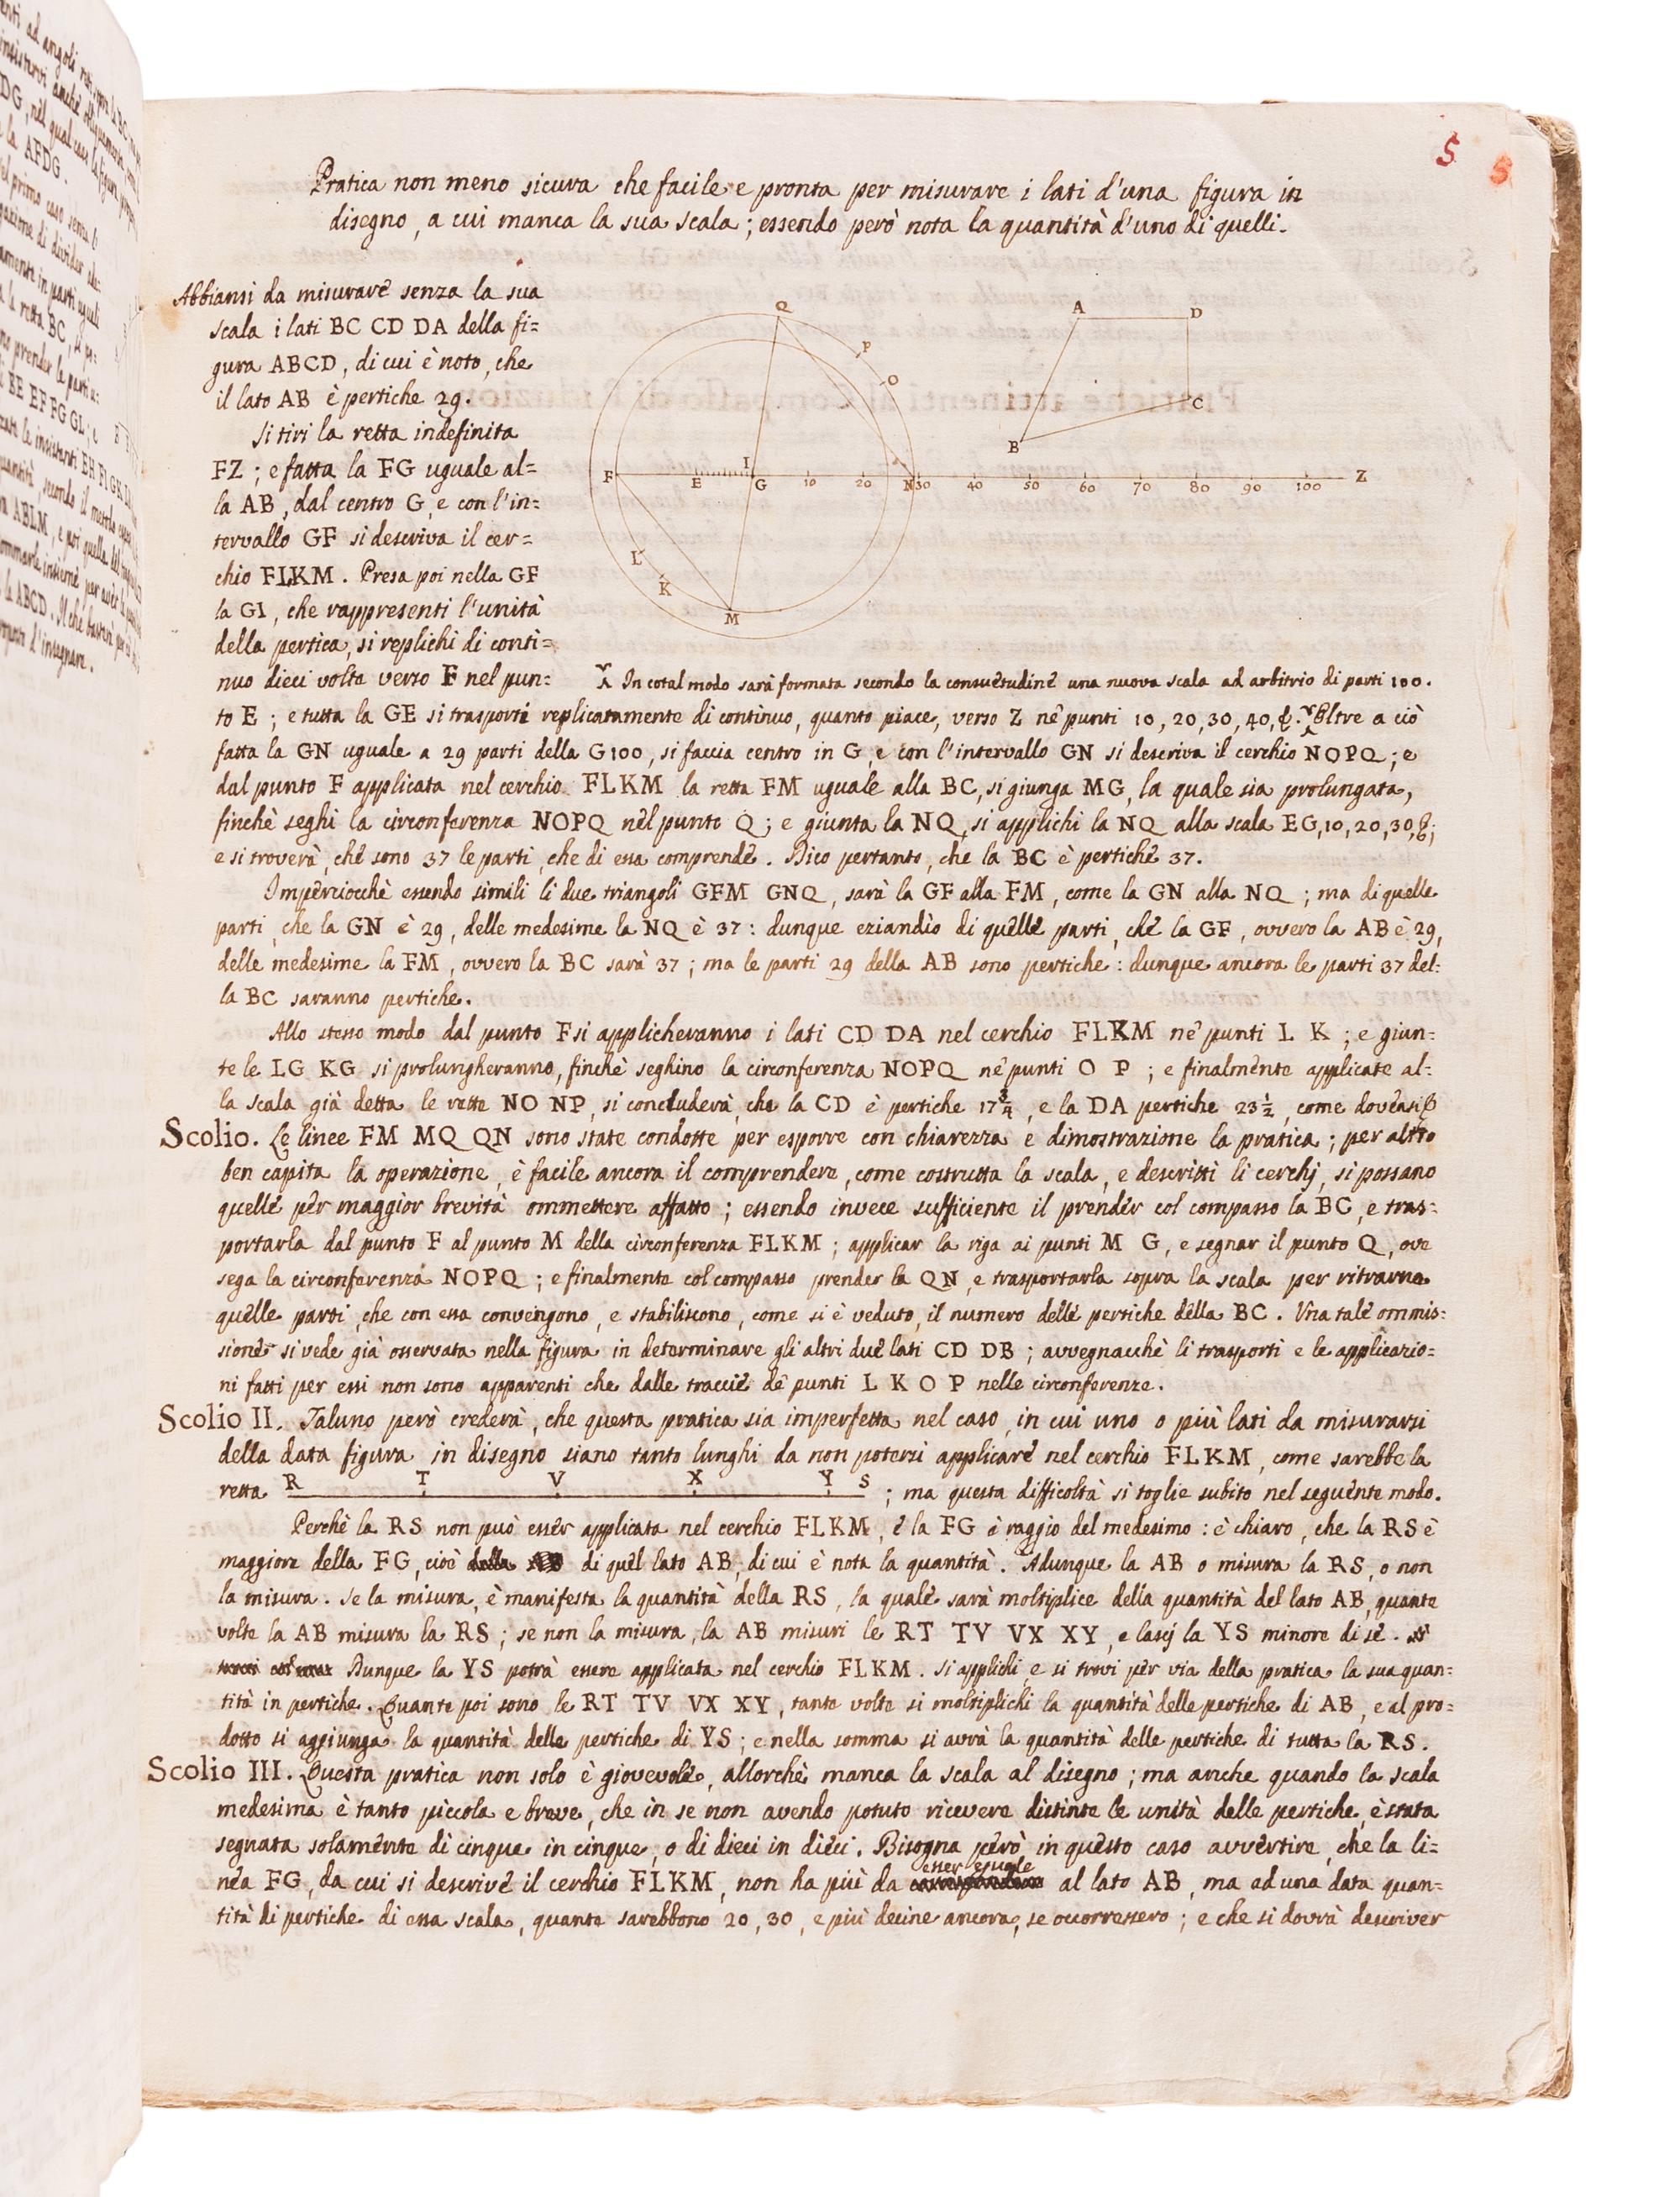 5 5
Pratica non meno sicura che facile e pronta per misurare i lati d'una figura in
disegno, a cui manca la sua scala; essendo però nota la quantità d'uno di quelli.
Abbiansi da misurare senza la sua
scala i lati BC CD DA della fi=
gura ABCD, di cui è noto, che
il lato AB è pertiche 29.
Si tiri la retta indefinita
FZ; e fatta la FG uguale al=
la AB, dal centro G, e con l'in=
tervallo GF si descriva il cer=
chio FLKM. Presa poi nella GF
la GI, che rappresenti l'unità
della pertica, si replichi di conti=
nuo dieci volte verso F nel pun=
Q P O N F E I G L K M
10 20 30 40 50 60 70 80 90 100 Z
A D C B
In cotal modo sarà formata secondo la consuetudine una nuova scala ad arbitrio di parti 100.
to E; e tutta la GE si trasporti replicatamente di continuo, quanto piace, verso Z ne' punti 10, 20, 30, 40, &. Oltre a ciò
fatta la GN uguale a 29 parti della G100, si faccia centro in G, e con l'intervallo GN si descriva il cerchio NOPQ; e
dal punto F applicata nel cerchio FLKM la retta FM uguale alla BC, si giunga MG, la quale sia prolungata,
finchè seghi la circonferenza NOPQ nel punto Q; e giunta la NQ, si applichi la NQ alla scala EG, 10, 20, 30, &;
e si troverà, che sono 37 le parti, che di essa comprende. Dico pertanto, che la BC è pertiche 37.
Imperciocchè essendo simili li due triangoli GFM GNQ, sarà la GF alla FM, come la GN alla NQ; ma di quelle
parti, che la GN è 29, delle medesime la NQ è 37: dunque eziandìo di quelle parti, che la GF, ovvero la AB è 29,
delle medesime la FM, ovvero la BC sarà 37; ma le parti 29 della AB sono pertiche: dunque ancora le parti 37 del=
la BC saranno pertiche.
Allo stesso modo dal punto F si applicheranno i lati CD DA nel cerchio FLKM ne' punti L K; e giun=
te le LG KG si prolungheranno, finchè seghino la circonferenza NOPQ ne' punti O P; e finalmente applicate al=
la scala già detta le rette NO NP, si concluderà, che la CD è pertiche 17 3/4, e la DA pertiche 23 1/2, come doveasi
Scolio. Le linee FM MQ QN sono state condotte per esporre con chiarezza e dimostrazione la pratica; per altro
ben capita la operazione, è facile ancora il comprendere, come costrutta la scala, e descritti li cerchj, si possano
quelle per maggior brevità ommettere affatto; essendo invece sufficiente il prender col compasso la BC, e tras=
portarla dal punto F al punto M della circonferenza FLKM; applicar la riga ai punti M G, e segnar il punto Q, ove
sega la circonferenza NOPQ; e finalmente col compasso prender la QN, e trasportarla sopra la scala per ritrarne
quelle parti, che con essa convengono, e stabiliscono, come si è veduto, il numero delle pertiche della BC. Una tale ommis=
sione si vede già osservata nella figura in determinare gli altri due lati CD DB; avvegnacchè li trasporti e le applicazio=
ni fatti per essi non sono apparenti che dalle traccie de' punti L K O P nelle circonferenze.
Scolio II. Taluno però crederà, che questa pratica sia imperfetta nel caso, in cui uno o più lati da misurarsi
della data figura in disegno siano tanto lunghi da non potersi applicare nel cerchio FLKM, come sarebbe la
retta R T V X Y S; ma questa difficoltà si toglie subito nel seguente modo.
Perchè la RS non può esser applicata nel cerchio FLKM, e la FG è raggio del medesimo: è chiaro, che la RS è
maggiore della FG, cioè di quel lato AB, di cui è nota la quantità. Adunque la AB o misura la RS, o non
la misura. Se la misura, è manifesta la quantità della RS, la quale sarà moltiplice della quantità del lato AB, quante
volte la AB misura la RS; se non la misura, la AB misuri le RT TV VX XY, e lascj la YS minore di sè.
Dunque la YS potrà essere applicata nel cerchio FLKM. Si applichi, e si trovi per via della pratica la sua quan=
tità in pertiche. Quante poi sono le RT TV VX XY, tante volte si moltiplichi la quantità delle pertiche di AB, e al pro=
dotto si aggiunga la quantità delle pertiche di YS; e nella somma si avrà la quantità delle pertiche di tutta la RS.
Scolio III. Questa pratica non solo è giovevole, allorchè manca la scala al disegno; ma anche quando la scala
medesima è tanto piccola e breve, che in se non avendo potuto ricevere distinte le unità delle pertiche, è stata
segnata solamente di cinque in cinque, o di dieci in dieci. Bisogna però in questo caso avvertire, che la li=
nea FG, da cui si descrive il cerchio FLKM, non ha più da esser eguale al lato AB, ma ad una data quan=
tità di pertiche di essa scala, quante sarebbono 20, 30, e più decine ancora, se occorressero; e che si dovrà descriver